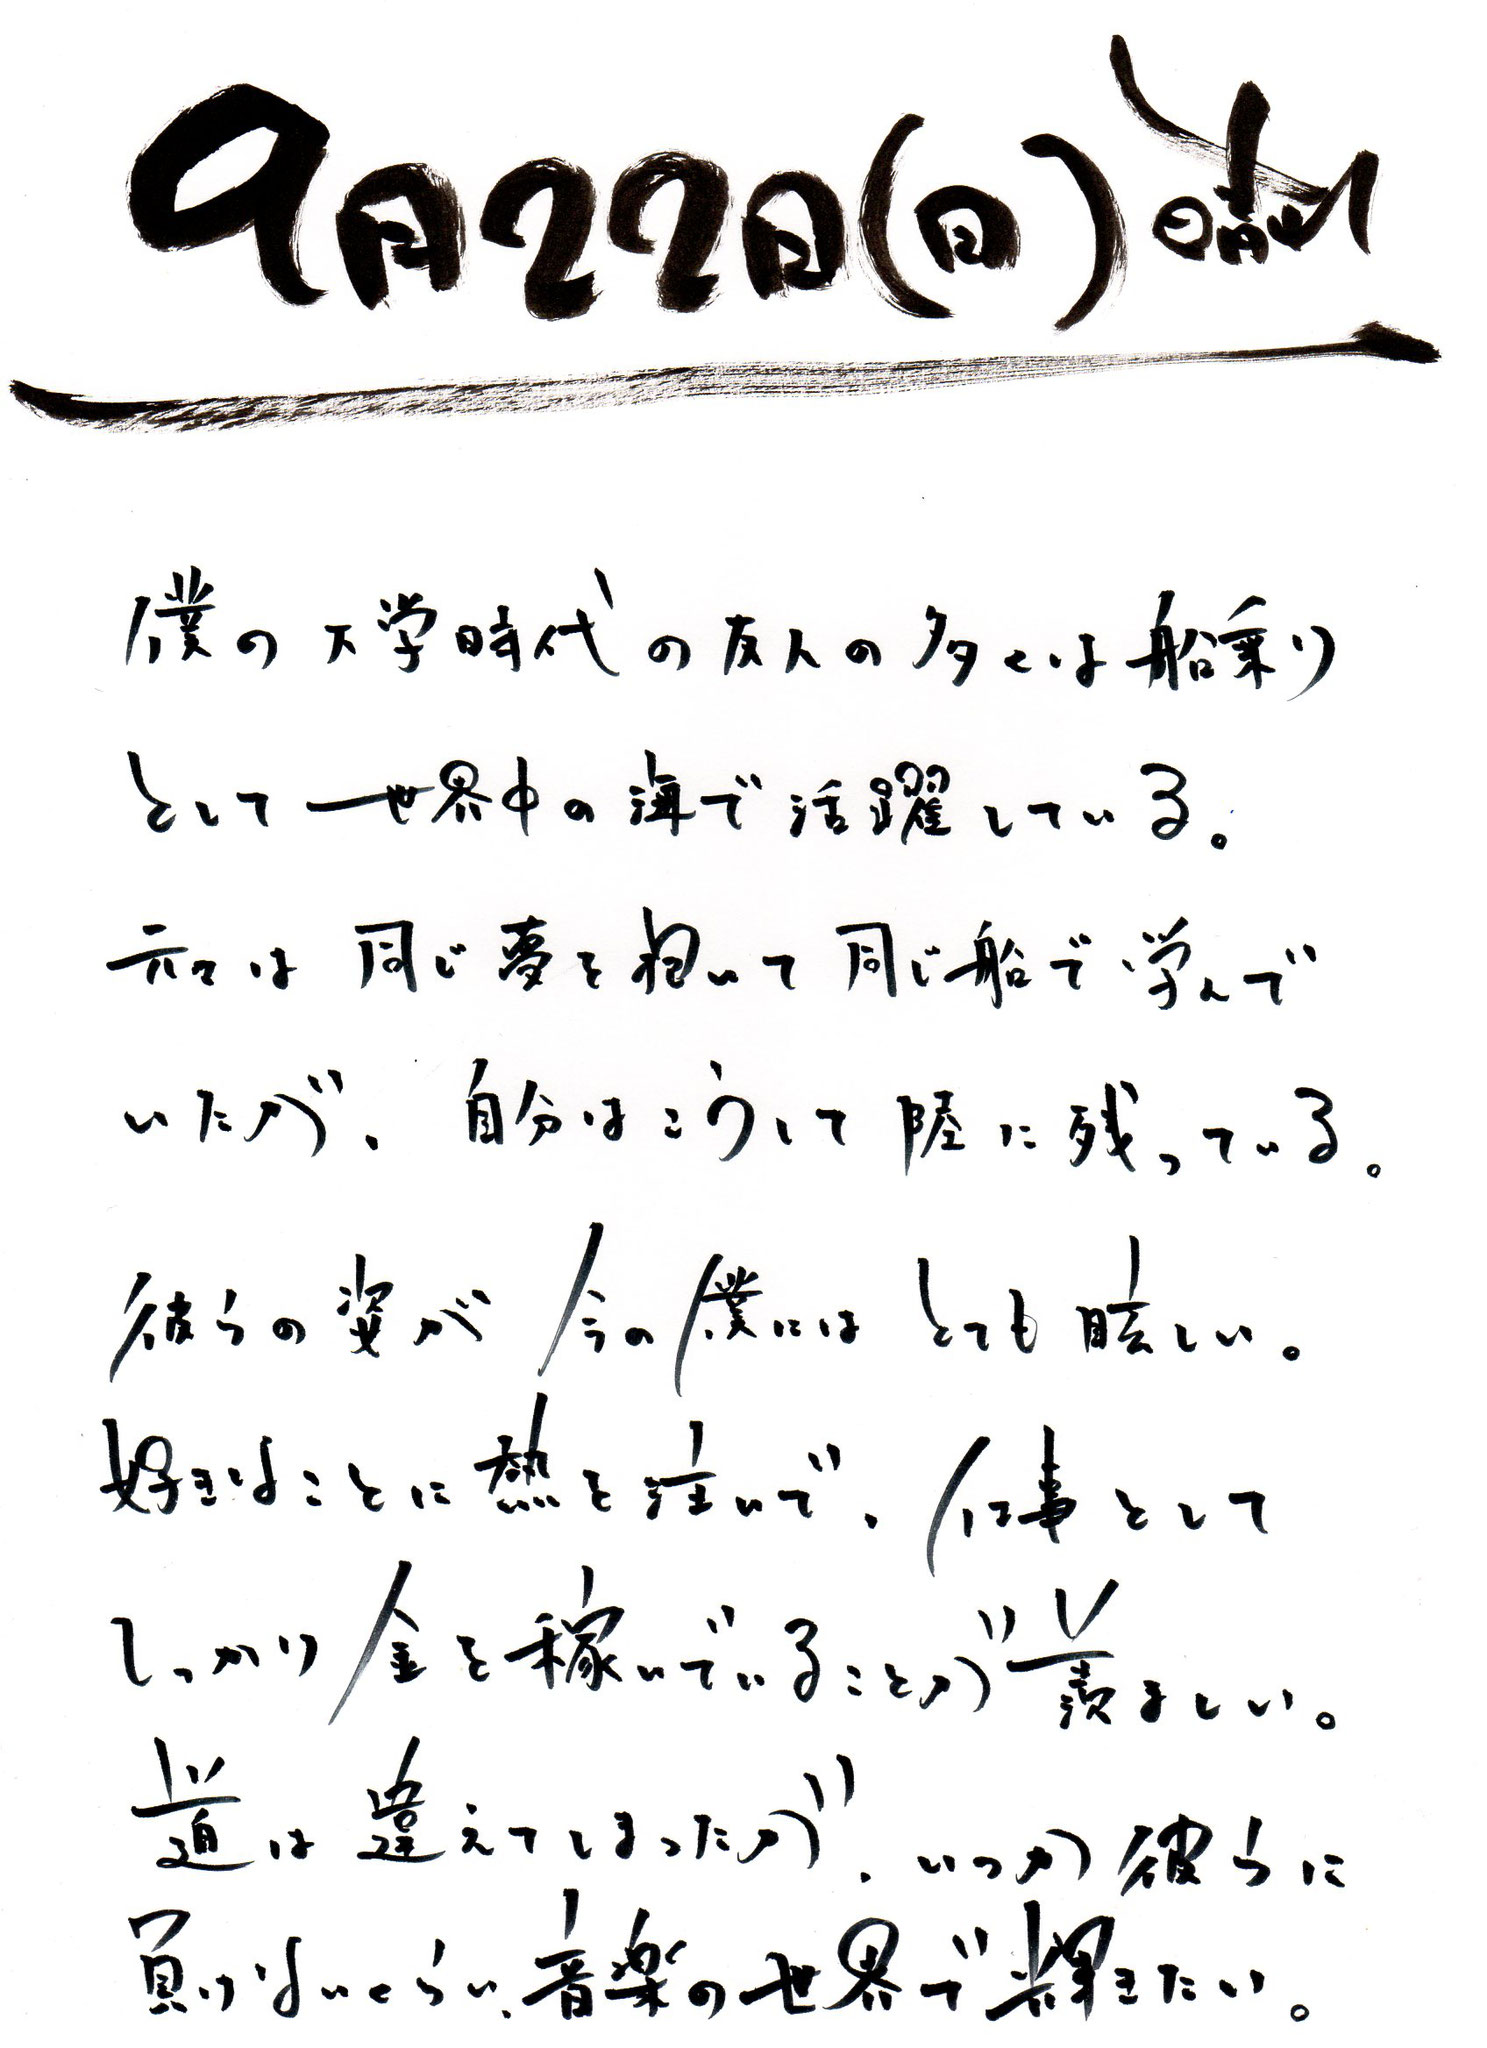 9月22日(日)晴れ
僕の大学時代の友人の多くは船乗り
として世界中の海で活躍している。
元々は同じ夢を抱いて同じ船で学んで
いたが、自分はこうして陸に残っている。
彼らの姿が今の僕にはとても眩しい。
好きなことに熱を注いで、仕事として
しっかり金を稼いでいることが羨ましい。
道は違えてしまったが、いつか彼らに
負けないくらい、音楽の世界で輝きたい。